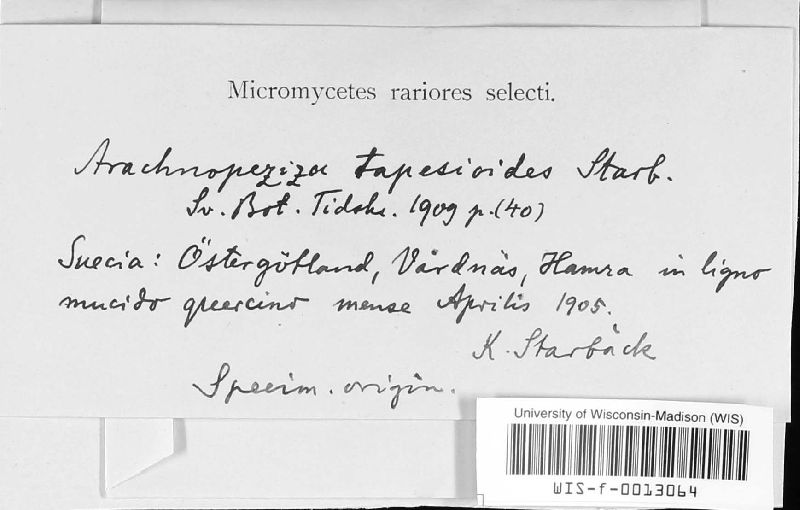 Micromycetes rariores selecti.
Arachnopeziza tapesioides Starb.
Sv. Bot. Tidskr. 1909 p. (40)
Suecia: Östergötland, Vårdnäs, Hamra in ligno
mucido quercino mense Aprilis 1905.
K. Starbäck
Specim. origin.
University of Wisconsin-Madison (WIS)
WIS-f-0013064